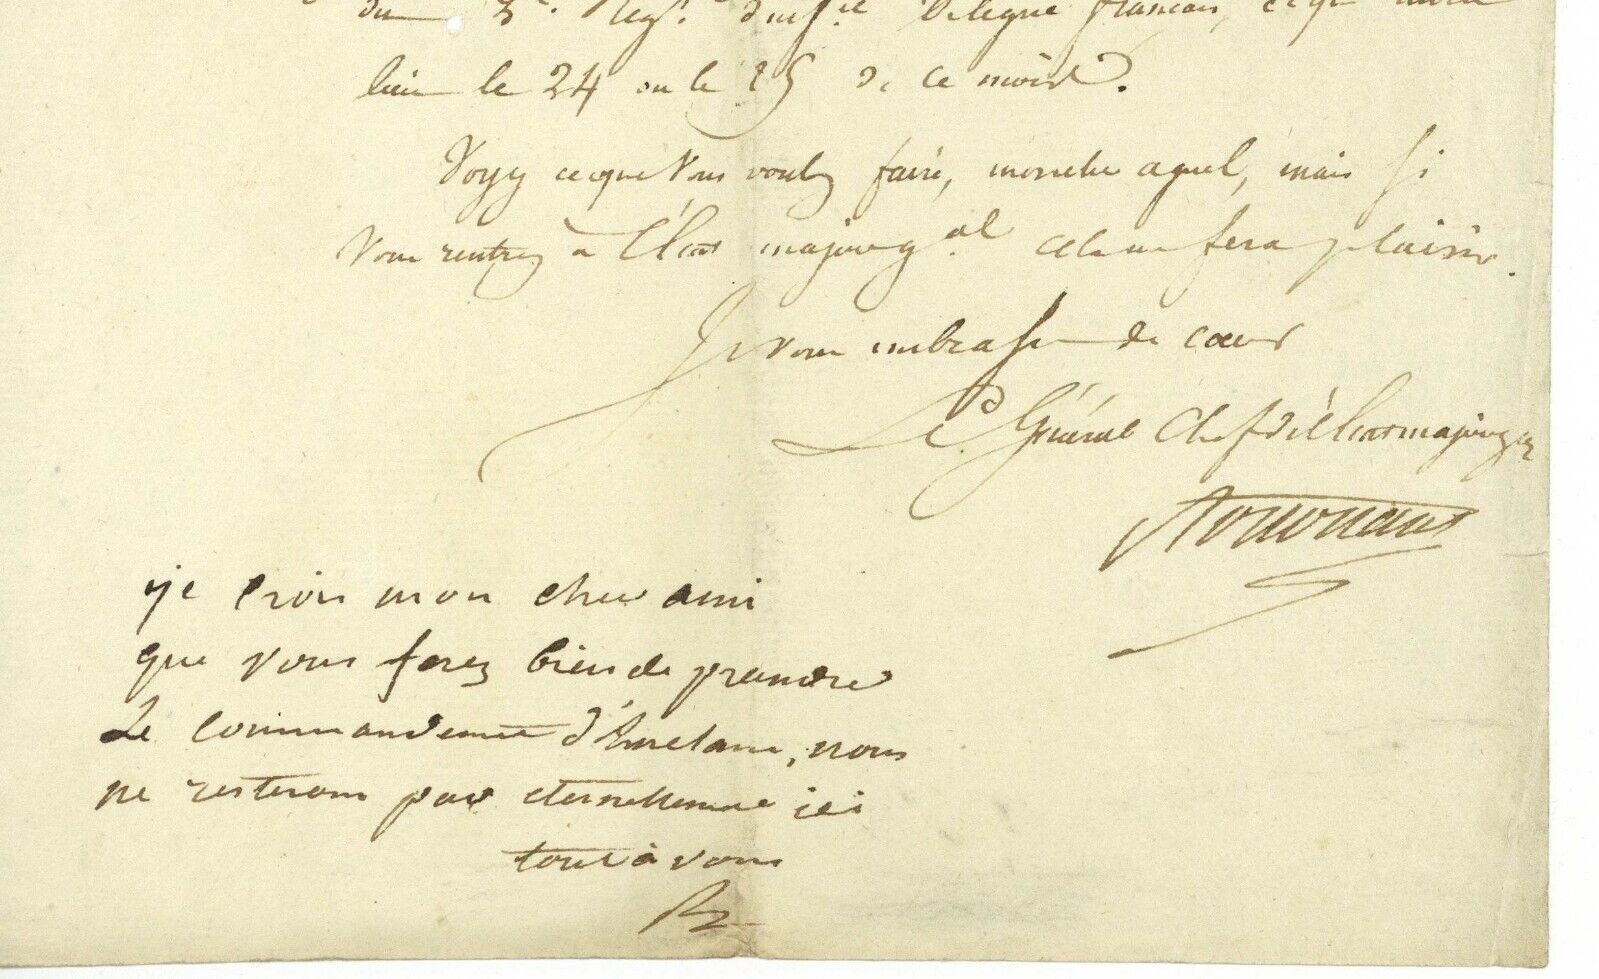 du 3e. Regt. d'infie. Légère français, ce qui aura
lieu le 24 ou le 25 de ce mois.
Voyez ceque Vous voulez faire, moncher aguel, mais si
Vous rentrez à l'Etat majour gal. cela me fera plaisir.
Je vous embrasse de cœur
Le Général Chef d'Etat major
je crois mon cher ami
que vous ferez bien de prendre
Le commandement nous
ne resterons pas eternellement ici
tout à vous
R